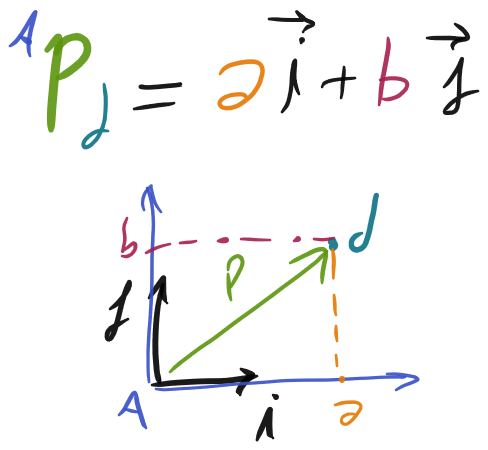 ᴬP_d = a i⃗ + b j⃗
b d
p
j
A i a